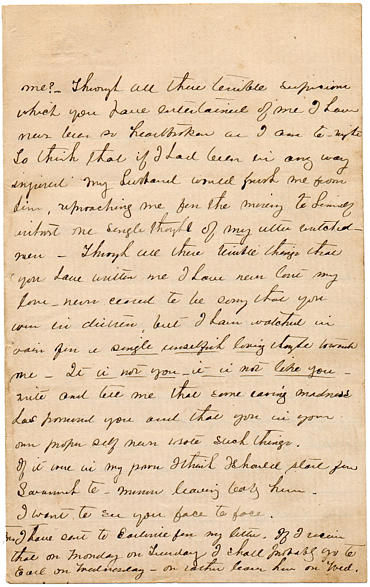 me? - Through all these terrible suspicions
which you have entertained of me I have
never been so heartbroken as I am to-night
To think that if I had been in any way
injured my husband would push me from
him, reproaching me for the misery to himself
without one single thought of my utter wretched-
ness - Through all these terrible things that
you have written me I have never lost my
love - never ceased to be sorry that you
were in distress, but I have watched in
vain for a single unselfish loving thought towards
me - It is not you - it is not like you -
write and tell me that some raving madness
has possessed you and that you in your
own proper self never wrote such things.
If it were in my power I think I should start for
Savannah to-morrow leaving baby here.
I want to see you face to face.
I have sent to for my letter. If I receive
that on Monday or Tuesday I shall probably go to
Earl on Wednesday - or rather leave here on Wed.